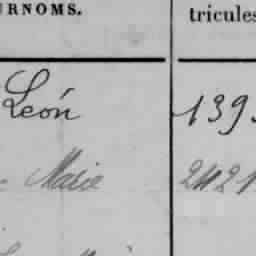 URNOMS. tricules
León 139
Marie 2421